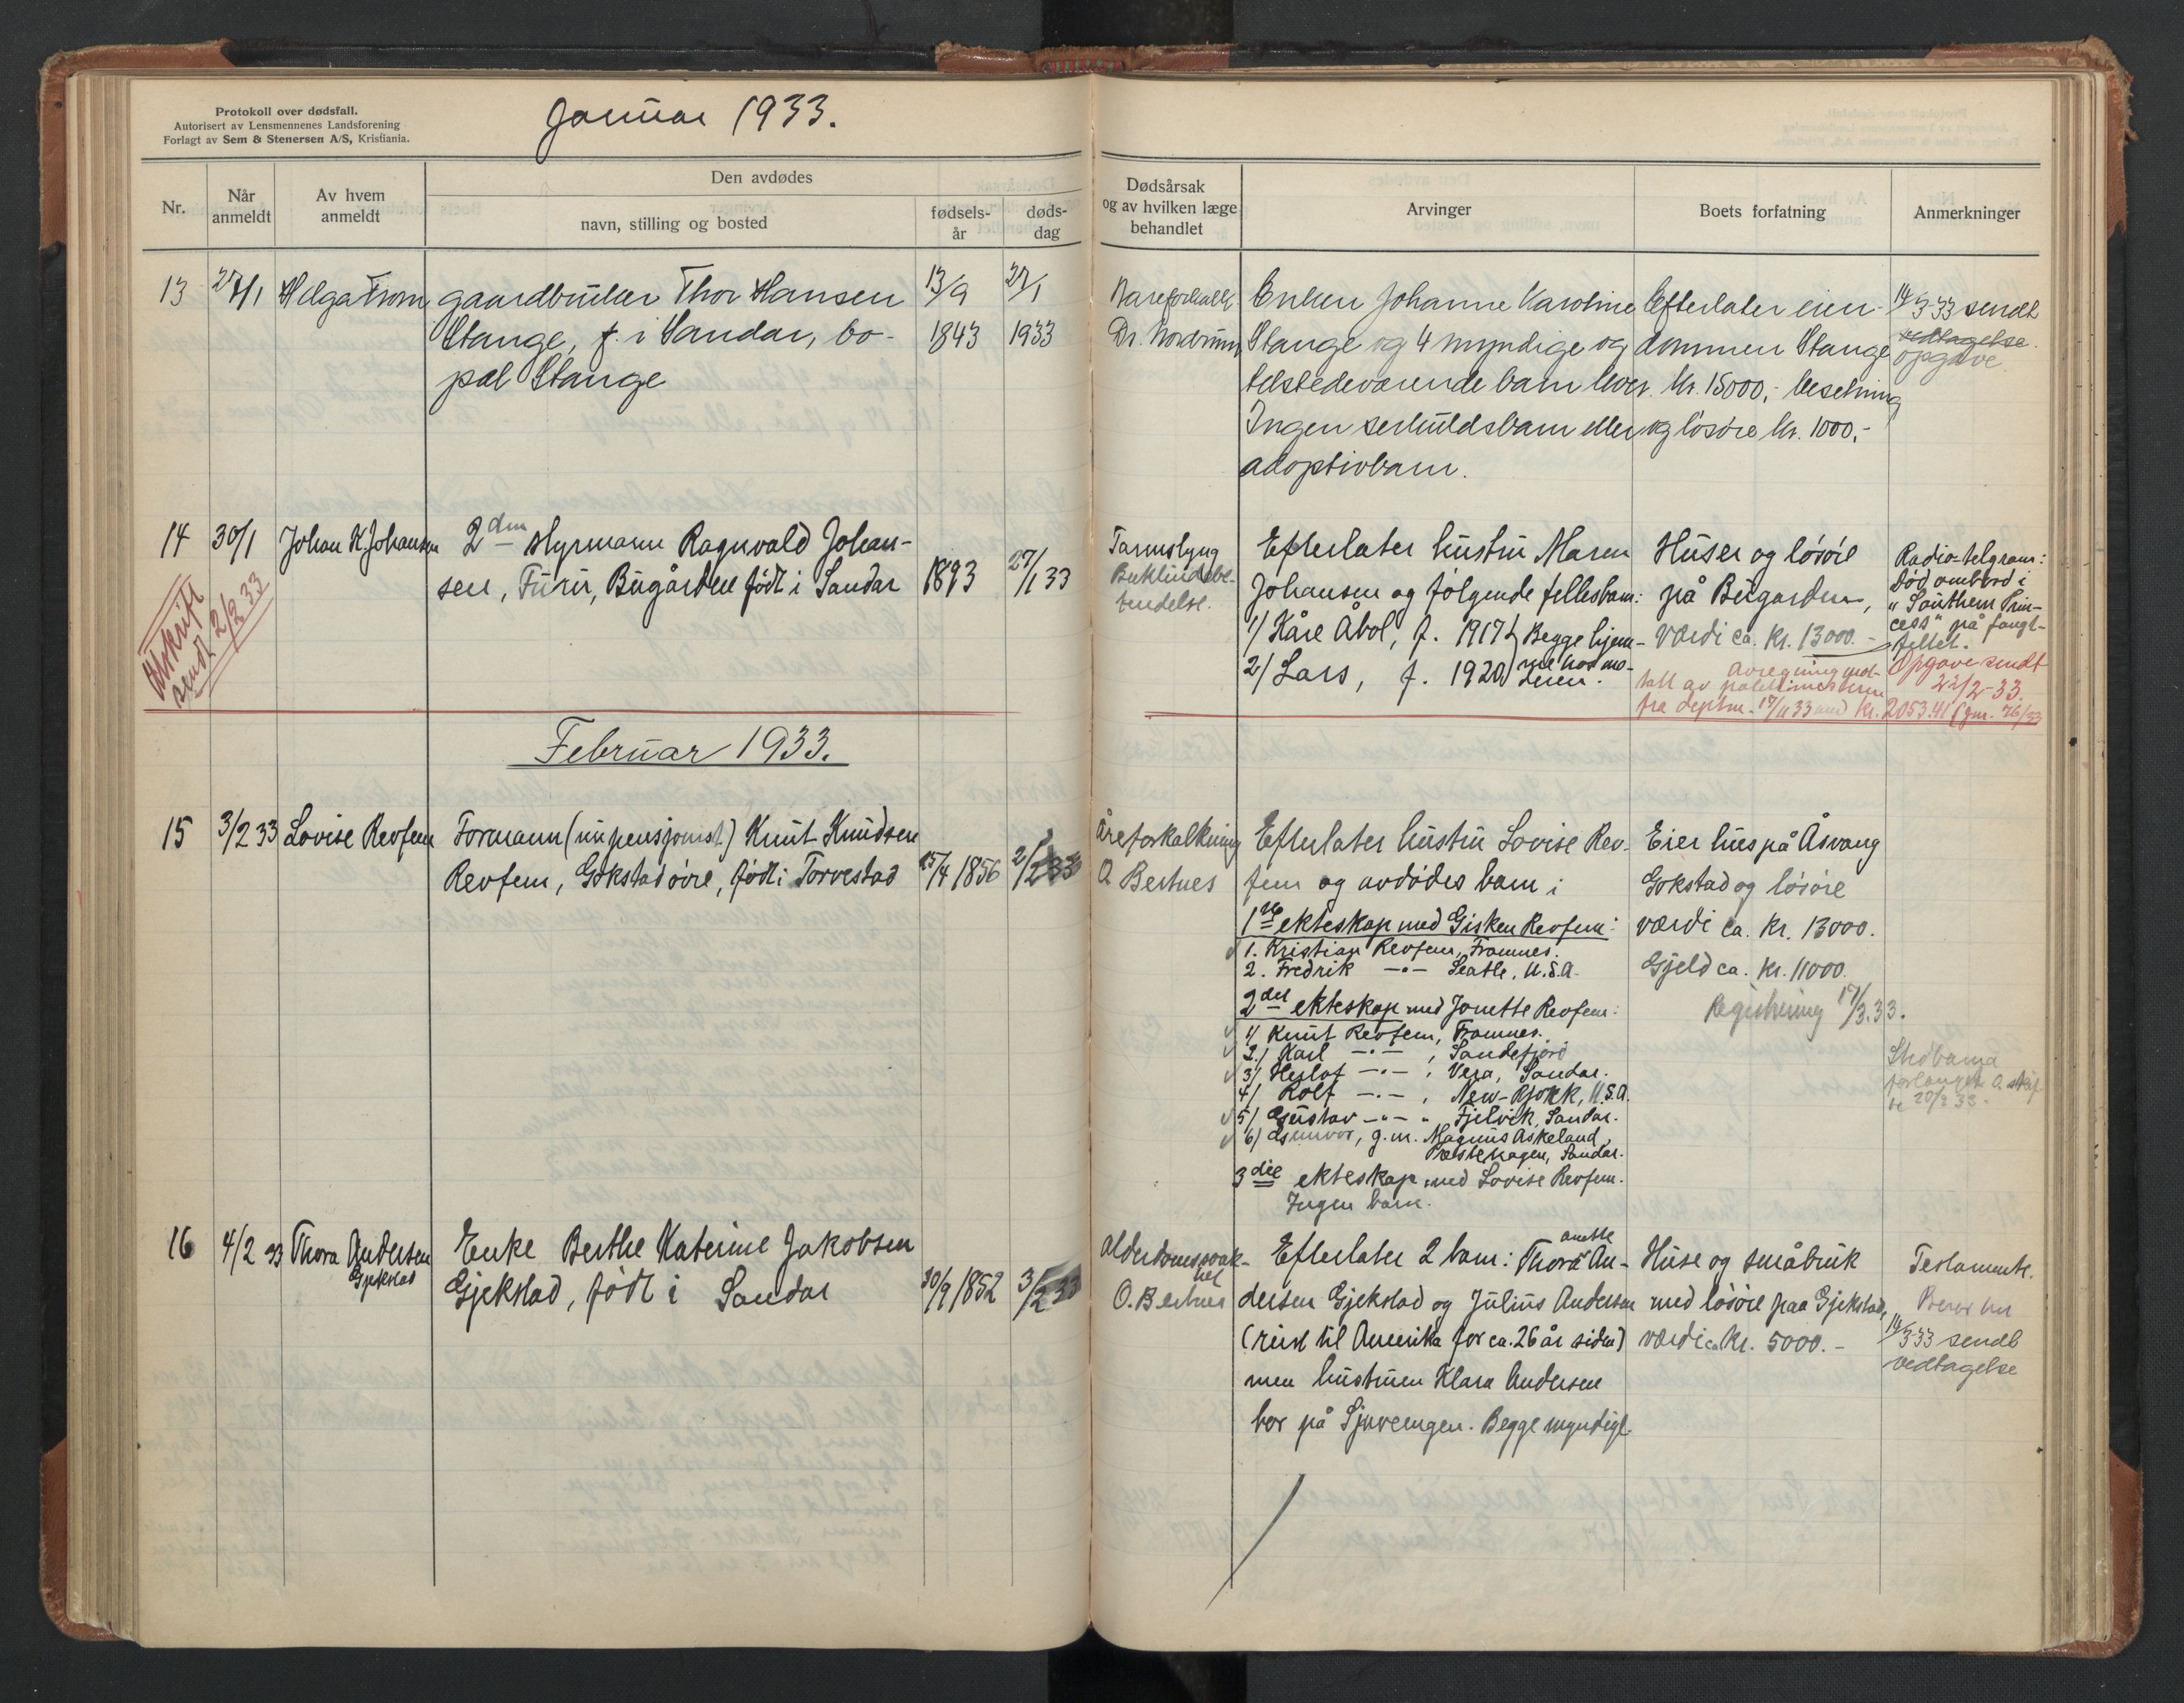 Protokoll over dødsfall.
Autorisert av Lensmennenes Landsforening
Forlagt av Sem & Stenersen A/S, Kristiania.
Januar 1933.
Nr.
Når anmeldt
Av hvem anmeldt
Den avdødes
navn, stilling og bosted
fødsels-år
døds-dag
Dødsårsak og av hvilken læge behandlet
Arvinger
Boets forfatning
Anmerkninger
13
Helga
gaardbruker Thor Hansen
Stange, f. i Sandar, bo-
pæl Stange
13/9
1843
1933
Dr. Nordrum
Enken Johanne Karoline
Stange og 4 myndige og
tilstedeværende barn
Ingen særkuldsbarn eller
adoptivbarn.
Efterlater eien-
dommen Stange
kr. 15000,- besetning
og løsøre kr. 1000,-
14/3-33 sendt
vedtagelse.
opgave
14
30/1
Johan H. Johansen
2den styrmann Ragnvald Johan-
sen, Furu, Bugården født i Sandar
1893
27/1 33
Avskrift
sendt 2/2 33
Tarmslyng
Bukhindebe-
tendelse.
Efterlater hustru Maren
Johansen og følgende fellesbarn:
1/ Kåre Åbol, f. 1917 } Begge hjem-
2/ Lars, f. 1920 } me hos mo-
deren.
Huser og løsøre
på Bugarden,
Værdi ca. kr. 13000.-
Radio-telgram:
Død ombord i
"Southern Prin-
cess" på fangst-
feltet.
Opgave sendt
22/2-33.
Avregning mot-
tatt av
fra deptm. 17/11 33 med kr. 2053.41 (gnr. 76/33
Februar 1933.
15
3/2 33
Lovise Revfem
Formann (nu pensjonist) Knut Knudsen
Revfem, Gokstad øvre, født i Torvestad
15/4 1856
2/2 33
Åreforkalkning
O Bertnes
Efterlater hustru Lovise Rev-
fem og avdødes barn i
1ste ekteskap med Gisken Revfem:
1. Kristian Revfem, Framnes.
2. Fredrik -"- Seatle, U.S.A.
2det ekteskap med Jonette Revfem:
1/ Knut Revfem, Framnes.
2./ Karl -"-, Sandefjord
3/ Herlof -"-, Vera, Sandar.
4/ Rolf -"-, New-Bjork, U.S.A.
5/ Gustav -"- " Fjelvik, Sandar.
6) g.m. Magnus Askeland,
Prestehagen, Sandar.
3die ekteskap med Lovise Revfem.
Ingen barn.
Eier hus på Åsvang
Gokstad og løsøre
værdi ca. kr. 13000.
Gjeld ca. kr. 11000.
Registrering 17/3.33.
forlanget
20/2 33.
16
4/2 33
Thora Andersen
Gjekstad
Enke Berthe Katerine Jakobsen
Gjekstad, født i Sandar
30/9 1852
3/2 33
Alderdomssvak-
het
O. Bertnes
Efterlater 2 barn: Thora Anette An-
dersen Gjekstad og Julius Andersen
(reist til Amerika for ca. 26 år siden)
men hustruen Klara Andersen
bor på Sjuvengen. Begge myndige.
Huse og småbruk
med løsøre paa Gjekstad,
værdi ca. kr. 5000.-
Testamente.
Beror her
14/3-33 sendt
vedtagelse